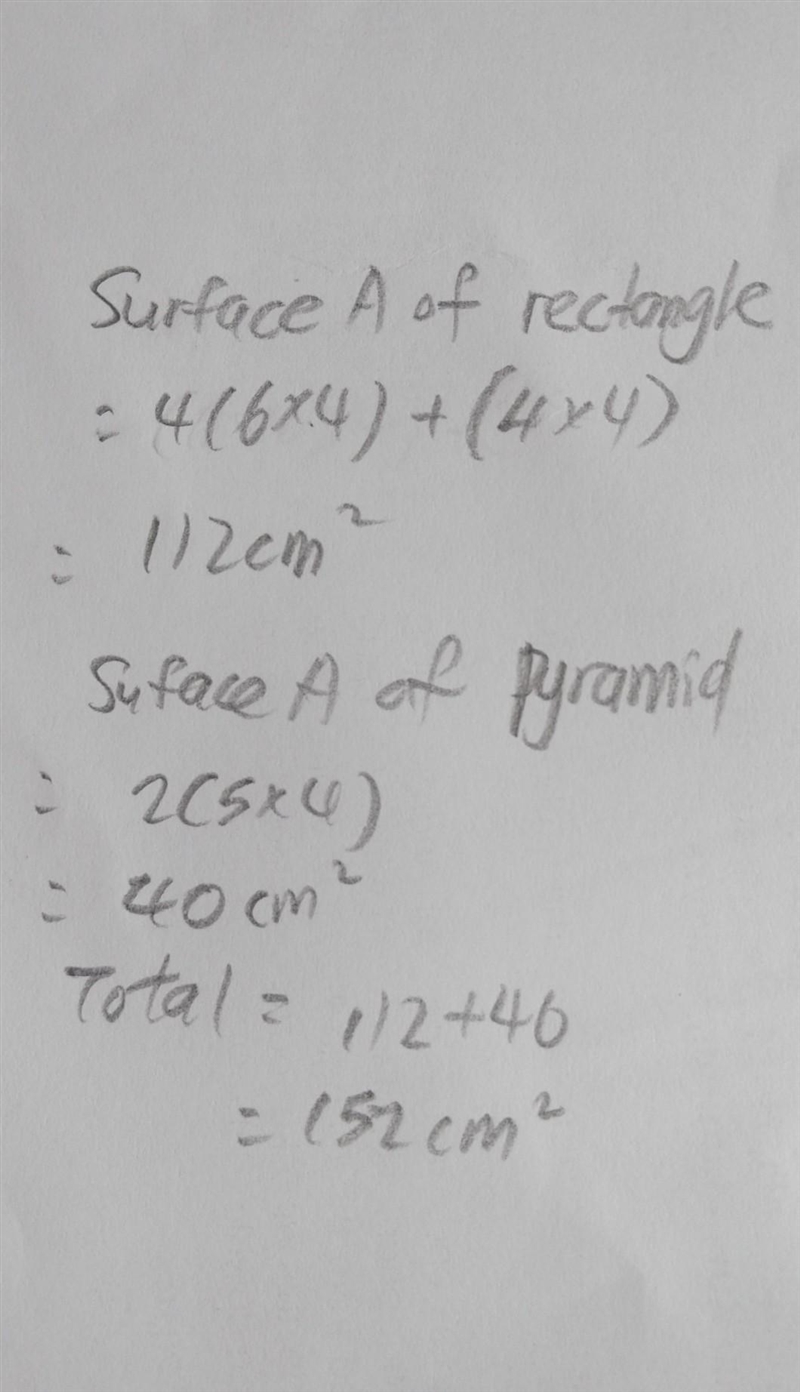 Surface A of rectangle
= 4(6×4) + (4×4)
= 112cm²
Suface A of pyramid
= 2(5×4)
= 40cm²
Total = 112+40
= 152cm²